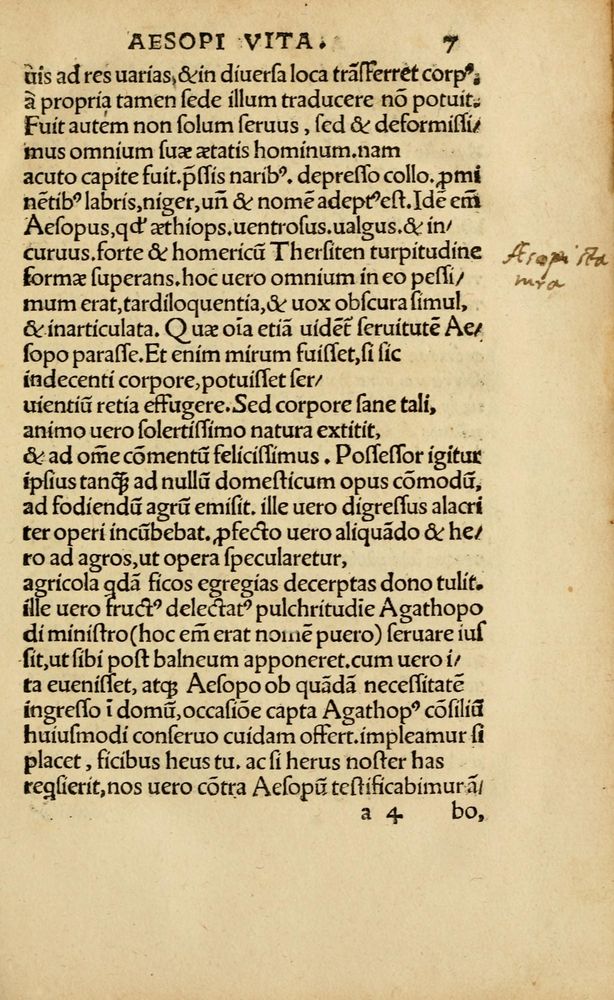 AESOPI VITA. 7
uis ad res uarias, & in diuersa loca trãsferret corpꝰ.
ã propria tamen sede illum traducere nõ potuit.
Fuit autem non solum seruus, sed & deformissi/
mus omnium suæ ætatis hominum. nam
acuto capite fuit. p̃ssis naribꝰ. depresso collo. ꝓmi
nẽtibꝰ labris, niger, uñ & nomẽ adeptꝰ est. Idẽ em̃
Aesopus, qd' æthiops. uentrosus. ualgus. & in/
curuus. forte & homericũ Thersiten turpitudine
formæ superans. hoc uero omnium in eo pessi/
mum erat, tardiloquentia, & uox obscura simul,
& inarticulata. Quæ oĩa etiã uidẽt̃ seruitutẽ Ae/
sopo parasse. Et enim mirum fuisset, si sic
indecenti corpore, potuisset ser/
uientiũ retia effugere. Sed corpore sane tali,
animo uero solertissimo natura extitit,
& ad om̃e cõmentũ felicissimus. Possessor igitur
ipsius tanꝗ̃ ad nullũ domesticum opus cõmodũ,
ad fodiendũ agrũ emisit. ille uero digressus alacri
ter operi incũbebat. ꝓfecto uero aliquãdo & he/
ro ad agros, ut opera specularetur,
agricola qdã ficos egregias decerptas dono tulit.
ille uero fructꝰ delectatꝰ pulchritudĩe Agathopo
di ministro (hoc em̃ erat nomẽ puero) seruare ius
sit, ut sibi post balneum apponeret. cum uero i/
ta euenisset, atꝗ Aesopo ob quãdã necessitatẽ
ingresso ĩ domũ, occasiõe capta Agathopꝰ cõsiliũ
huiusmodi conseruo cuidam offert. impleamur si
placet, ficibus heus tu. ac si herus noster has
reqsierit, nos uero cõtra Aesopũ testificabimur ã/
a 4 bo,
Æsopi sta